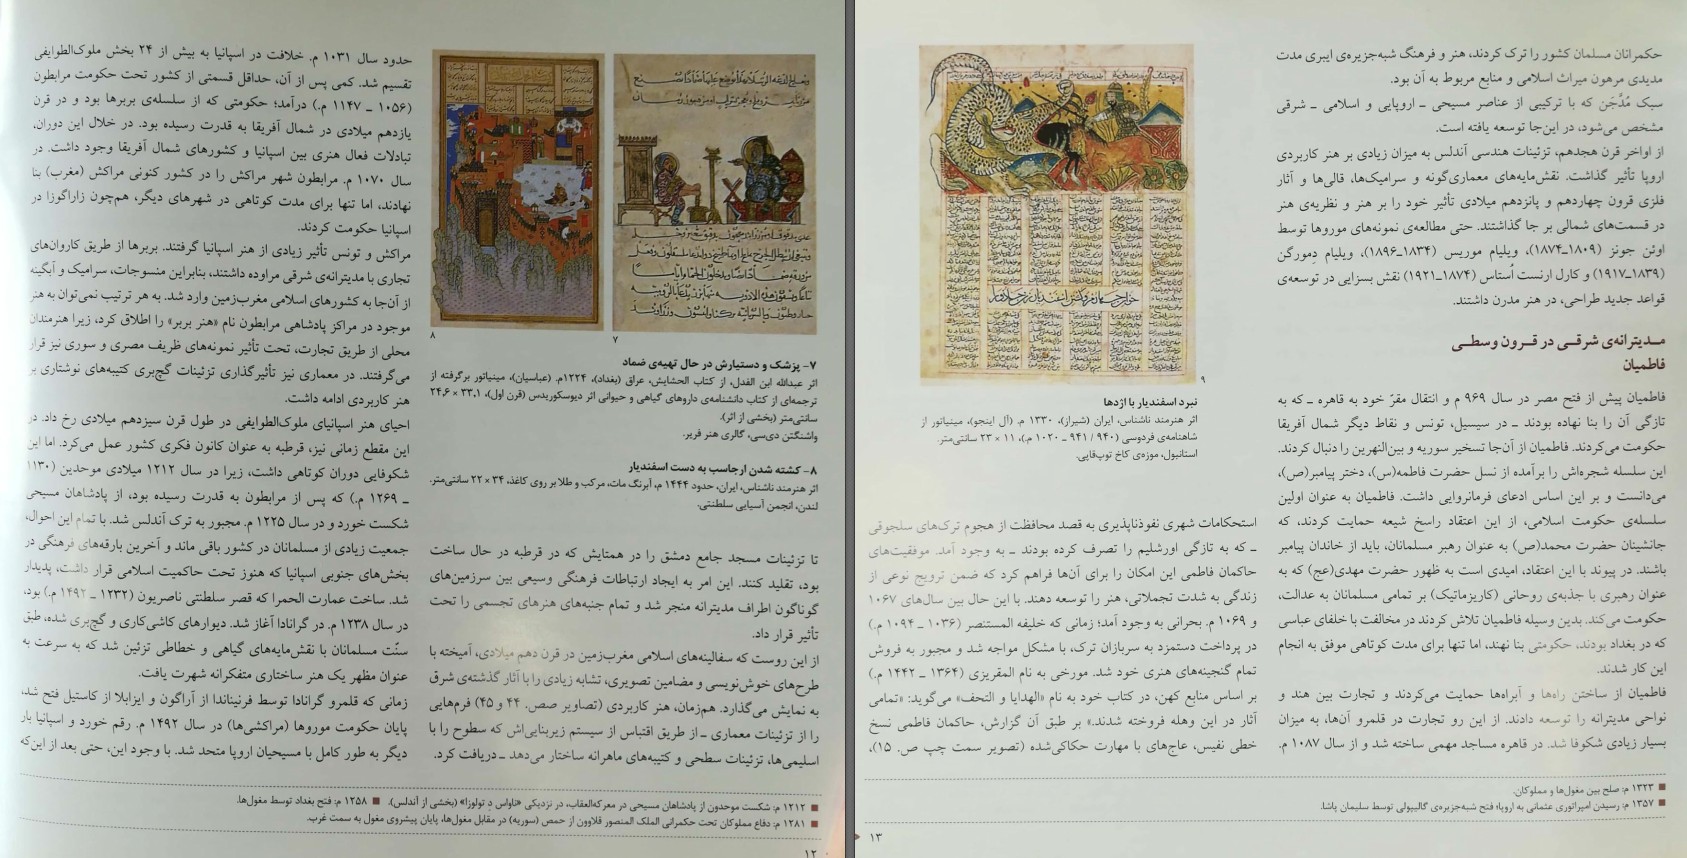 ۸
۷
۷- پزشک و دستیارش در حال تهیه‌ی ضماد
اثر عبدالله ابن الفدل، از کتاب الحشایش، عراق (بغداد)، ۱۲۲۴م. (عباسیان)، مینیاتور برگرفته از
ترجمه‌ای از کتاب دانشنامه‌ی داروهای گیاهی و حیوانی اثر دیوسکوریدس (قرن اول)، ۳۳٫۱ × ۲۴٫۶
سانتی‌متر (بخشی از اثر).
واشنگتن دی‌سی، گالری هنر فریر.
۸- کشته شدن ارجاسب به دست اسفندیار
اثر هنرمند ناشناس، ایران، حدود ۱۴۴۴ م، آبرنگ مات، مرکب و طلا بر روی کاغذ، ۳۴ × ۲۲ سانتی‌متر.
لندن، انجمن آسیایی سلطنتی.
تا تزئینات مسجد جامع دمشق را در همتایش که در قرطبه در حال ساخت
بود، تقلید کنند. این امر به ایجاد ارتباطات فرهنگی وسیعی بین سرزمین‌های
گوناگون اطراف مدیترانه منجر شد و تمام جنبه‌های هنرهای تجسمی را تحت
تأثیر قرار داد.
از این روست که سفالینه‌های اسلامی مغرب‌زمین در قرن دهم میلادی، آمیخته با
طرح‌های خوش‌نویسی و مضامین تصویری، تشابه زیادی را با آثار گذشته‌ی شرق
به نمایش می‌گذارد. هم‌زمان، هنر کاربردی (تصاویر صص. ۴۴ و ۴۵) فرم‌هایی
را از تزئینات معماری ـ از طریق اقتباس از سیستم زیربنایی‌اش که سطوح را با
اسلیمی‌ها، تزئینات سطحی و کتیبه‌های ماهرانه ساختار می‌دهد ـ دریافت کرد.
حدود سال ۱۰۳۱ م. خلافت در اسپانیا به بیش از ۲۴ بخش ملوک‌الطوایفی
تقسیم شد. کمی پس از آن، حداقل قسمتی از کشور تحت حکومت مرابطون
(۱۰۵۶ ـ ۱۱۴۷ م.) درآمد؛ حکومتی که از سلسله‌ی بربرها بود و در قرن
یازدهم میلادی در شمال آفریقا به قدرت رسیده بود. در خلال این دوران،
تبادلات فعال هنری بین اسپانیا و کشورهای شمال آفریقا وجود داشت. در
سال ۱۰۷۰ م. مرابطون شهر مراکش را در کشور کنونی مراکش (مغرب) بنا
نهادند، اما تنها برای مدت کوتاهی در شهرهای دیگر، هم‌چون زاراگوزا در
اسپانیا حکومت کردند.
مراکش و تونس تأثیر زیادی از هنر اسپانیا گرفتند. بربرها از طریق کاروان‌های
تجاری با مدیترانه‌ی شرقی مراوده داشتند، بنابراین منسوجات، سرامیک و آبگینه
از آن‌جا به کشورهای اسلامی مغرب‌زمین وارد شد. به هر ترتیب نمی‌توان به هنر
موجود در مراکز پادشاهی مرابطون نام «هنر بربر» را اطلاق کرد، زیرا هنرمندان
محلی از طریق تجارت، تحت تأثیر نمونه‌های ظریف مصری و سوری نیز قرار
می‌گرفتند. در معماری نیز تأثیرگذاری تزئینات گچ‌بری کتیبه‌های نوشتاری بر
هنر کاربردی ادامه داشت.
احیای هنر اسپانیای ملوک‌الطوایفی در طول قرن سیزدهم میلادی رخ داد. در
این مقطع زمانی نیز، قرطبه به عنوان کانون فکری کشور عمل می‌کرد. اما این
شکوفایی دوران کوتاهی داشت، زیرا در سال ۱۲۱۲ میلادی موحدین (۱۱۳۰
ـ ۱۲۶۹ م.) که پس از مرابطون به قدرت رسیده بود، از پادشاهان مسیحی
شکست خورد و در سال ۱۲۲۵ م. مجبور به ترک آندلس شد. با تمام این احوال،
جمعیت زیادی از مسلمانان در کشور باقی ماند و آخرین بارقه‌های فرهنگی در
بخش‌های جنوبی اسپانیا که هنوز تحت حاکمیت اسلامی قرار داشت، پدیدار
شد. ساخت عمارت الحمرا که قصر سلطنتی ناصریون (۱۲۳۲ ـ ۱۴۹۲ م.) بود،
در سال ۱۲۳۸ م. در گرانادا آغاز شد. دیوارهای کاشی‌کاری و گچ‌بری شده، طبق
سنّت مسلمانان با نقش‌مایه‌های گیاهی و خطاطی تزئین شد که به سرعت به
عنوان مظهر یک هنر ساختاری متفکرانه شهرت یافت.
زمانی که قلمرو گرانادا توسط فرنیناندا از آراگون و ایزابلا از کاستیل فتح شد،
پایان حکومت موروها (مراکشی‌ها) در سال ۱۴۹۲ م. رقم خورد و اسپانیا بار
دیگر به طور کامل با مسیحیان اروپا متحد شد. با وجود این، حتی بعد از این‌که
■ ۱۲۱۲ م: شکست موحدون از پادشاهان مسیحی در معرکه‌العقاب، در نزدیکی «ناواس دِ تولوزا» (بخشی از آندلس). ■ ۱۲۵۸ م: فتح بغداد توسط مغول‌ها.
■ ۱۲۸۱ م: دفاع مملوکان تحت حکمرانی الملک المنصور قلاوون از حمص (سوریه) در مقابل مغول‌ها، پایان پیشروی مغول به سمت غرب.
۱۲
حکمرانان مسلمان کشور را ترک کردند، هنر و فرهنگ شبه‌جزیره‌ی ایبری مدت
مدیدی مرهون میراث اسلامی و منابع مربوط به آن بود.
سبک مُدَّجَن که با ترکیبی از عناصر مسیحی ـ اروپایی و اسلامی ـ شرقی
مشخص می‌شود، در این‌جا توسعه یافته است.
از اواخر قرن هجدهم، تزئینات هندسی آندلس به میزان زیادی بر هنر کاربردی
اروپا تأثیر گذاشت. نقش‌مایه‌های معماری‌گونه و سرامیک‌ها، قالی‌ها و آثار
فلزی قرون چهاردهم و پانزدهم میلادی تأثیر خود را بر هنر و نظریه‌ی هنر
در قسمت‌های شمالی بر جا گذاشتند. حتی مطالعه‌ی نمونه‌های موروها توسط
اوئن جونز (۱۸۰۹ـ۱۸۷۴)، ویلیام موریس (۱۸۳۴ـ۱۸۹۶)، ویلیام دِمورگن
(۱۸۳۹ـ۱۹۱۷) و کارل ارنست اُستاس (۱۸۷۴ـ۱۹۲۱) نقش بسزایی در توسعه‌ی
قواعد جدید طراحی، در هنر مدرن داشتند.
مـدیترانه‌ی شرقـی در قـرون وسطـی
فاطمیان
فاطمیان پیش از فتح مصر در سال ۹۶۹ م و انتقال مقرّ خود به قاهره ـ که به
تازگی آن را بنا نهاده بودند ـ در سیسیل، تونس و نقاط دیگر شمال آفریقا
حکومت می‌کردند. فاطمیان از آن‌جا تسخیر سوریه و بین‌النهرین را دنبال کردند.
این سلسله شجره‌اش را برآمده از نسل حضرت فاطمه(س)، دختر پیامبر(ص)،
می‌دانست و بر این اساس ادعای فرمانروایی داشت. فاطمیان به عنوان اولین
سلسله‌ی حکومت اسلامی، از این اعتقاد راسخ شیعه حمایت کردند، که
جانشینان حضرت محمد(ص) به عنوان رهبر مسلمانان، باید از خاندان پیامبر
باشند. در پیوند با این اعتقاد، امیدی است به ظهور حضرت مهدی(عج) که به
عنوان رهبری با جذبه‌ی روحانی (کاریزماتیک) بر تمامی مسلمانان به عدالت،
حکومت می‌کند. بدین وسیله فاطمیان تلاش کردند در مخالفت با خلفای عباسی
که در بغداد بودند، حکومتی بنا نهند، اما تنها برای مدت کوتاهی موفق به انجام
این کار شدند.
فاطمیان از ساختن راه‌ها و آبراه‌ها حمایت می‌کردند و تجارت بین هند و
نواحی مدیترانه را توسعه دادند. از این رو تجارت در قلمرو آن‌ها، به میزان
بسیار زیادی شکوفا شد. در قاهره مساجد مهمی ساخته شد و از سال ۱۰۸۷ م.
۹
نبرد اسفندیار با اژدها
اثر هنرمند ناشناس، ایران (شیراز)، ۱۳۳۰ م. (آل اینجو)، مینیاتور از
شاهنامه‌ی فردوسی (۹۴۰ / ۹۴۱ ـ ۱۰۲۰ م.)، ۱۱ × ۲۳ سانتی‌متر.
استانبول، موزه‌ی کاخ توپ‌قاپی.
استحکامات شهری نفوذناپذیری به قصد محافظت از هجوم ترک‌های سلجوقی
ـ که به تازگی اورشلیم را تصرف کرده بودند ـ به وجود آمد. موفقیت‌های
حاکمان فاطمی این امکان را برای آن‌ها فراهم کرد که ضمن ترویج نوعی از
زندگی به شدت تجملاتی، هنر را توسعه دهند. با این حال بین سال‌های ۱۰۶۷
و ۱۰۶۹ م. بحرانی به وجود آمد؛ زمانی که خلیفه المستنصر (۱۰۳۶ ـ ۱۰۹۴ م.)
در پرداخت دستمزد به سربازان ترک، با مشکل مواجه شد و مجبور به فروش
تمام گنجینه‌های هنری خود شد. مورخی به نام المقریزی (۱۳۶۴ ـ ۱۴۴۲ م.)
بر اساس منابع کهن، در کتاب خود به نام «الهدایا و التحف» می‌گوید: «تمامی
آثار در این وهله فروخته شدند.» بر طبق آن گزارش، حاکمان فاطمی نسخ
خطی نفیس، عاج‌های با مهارت حکاکی‌شده (تصویر سمت چپ ص. ۱۵)،
■ ۱۳۲۳ م: صلح بین مغول‌ها و مملوکان.
■ ۱۳۵۷ م: رسیدن امپراتوری عثمانی به اروپا؛ فتح شبه‌جزیره‌ی گالیپولی توسط سلیمان پاشا.
۱۳